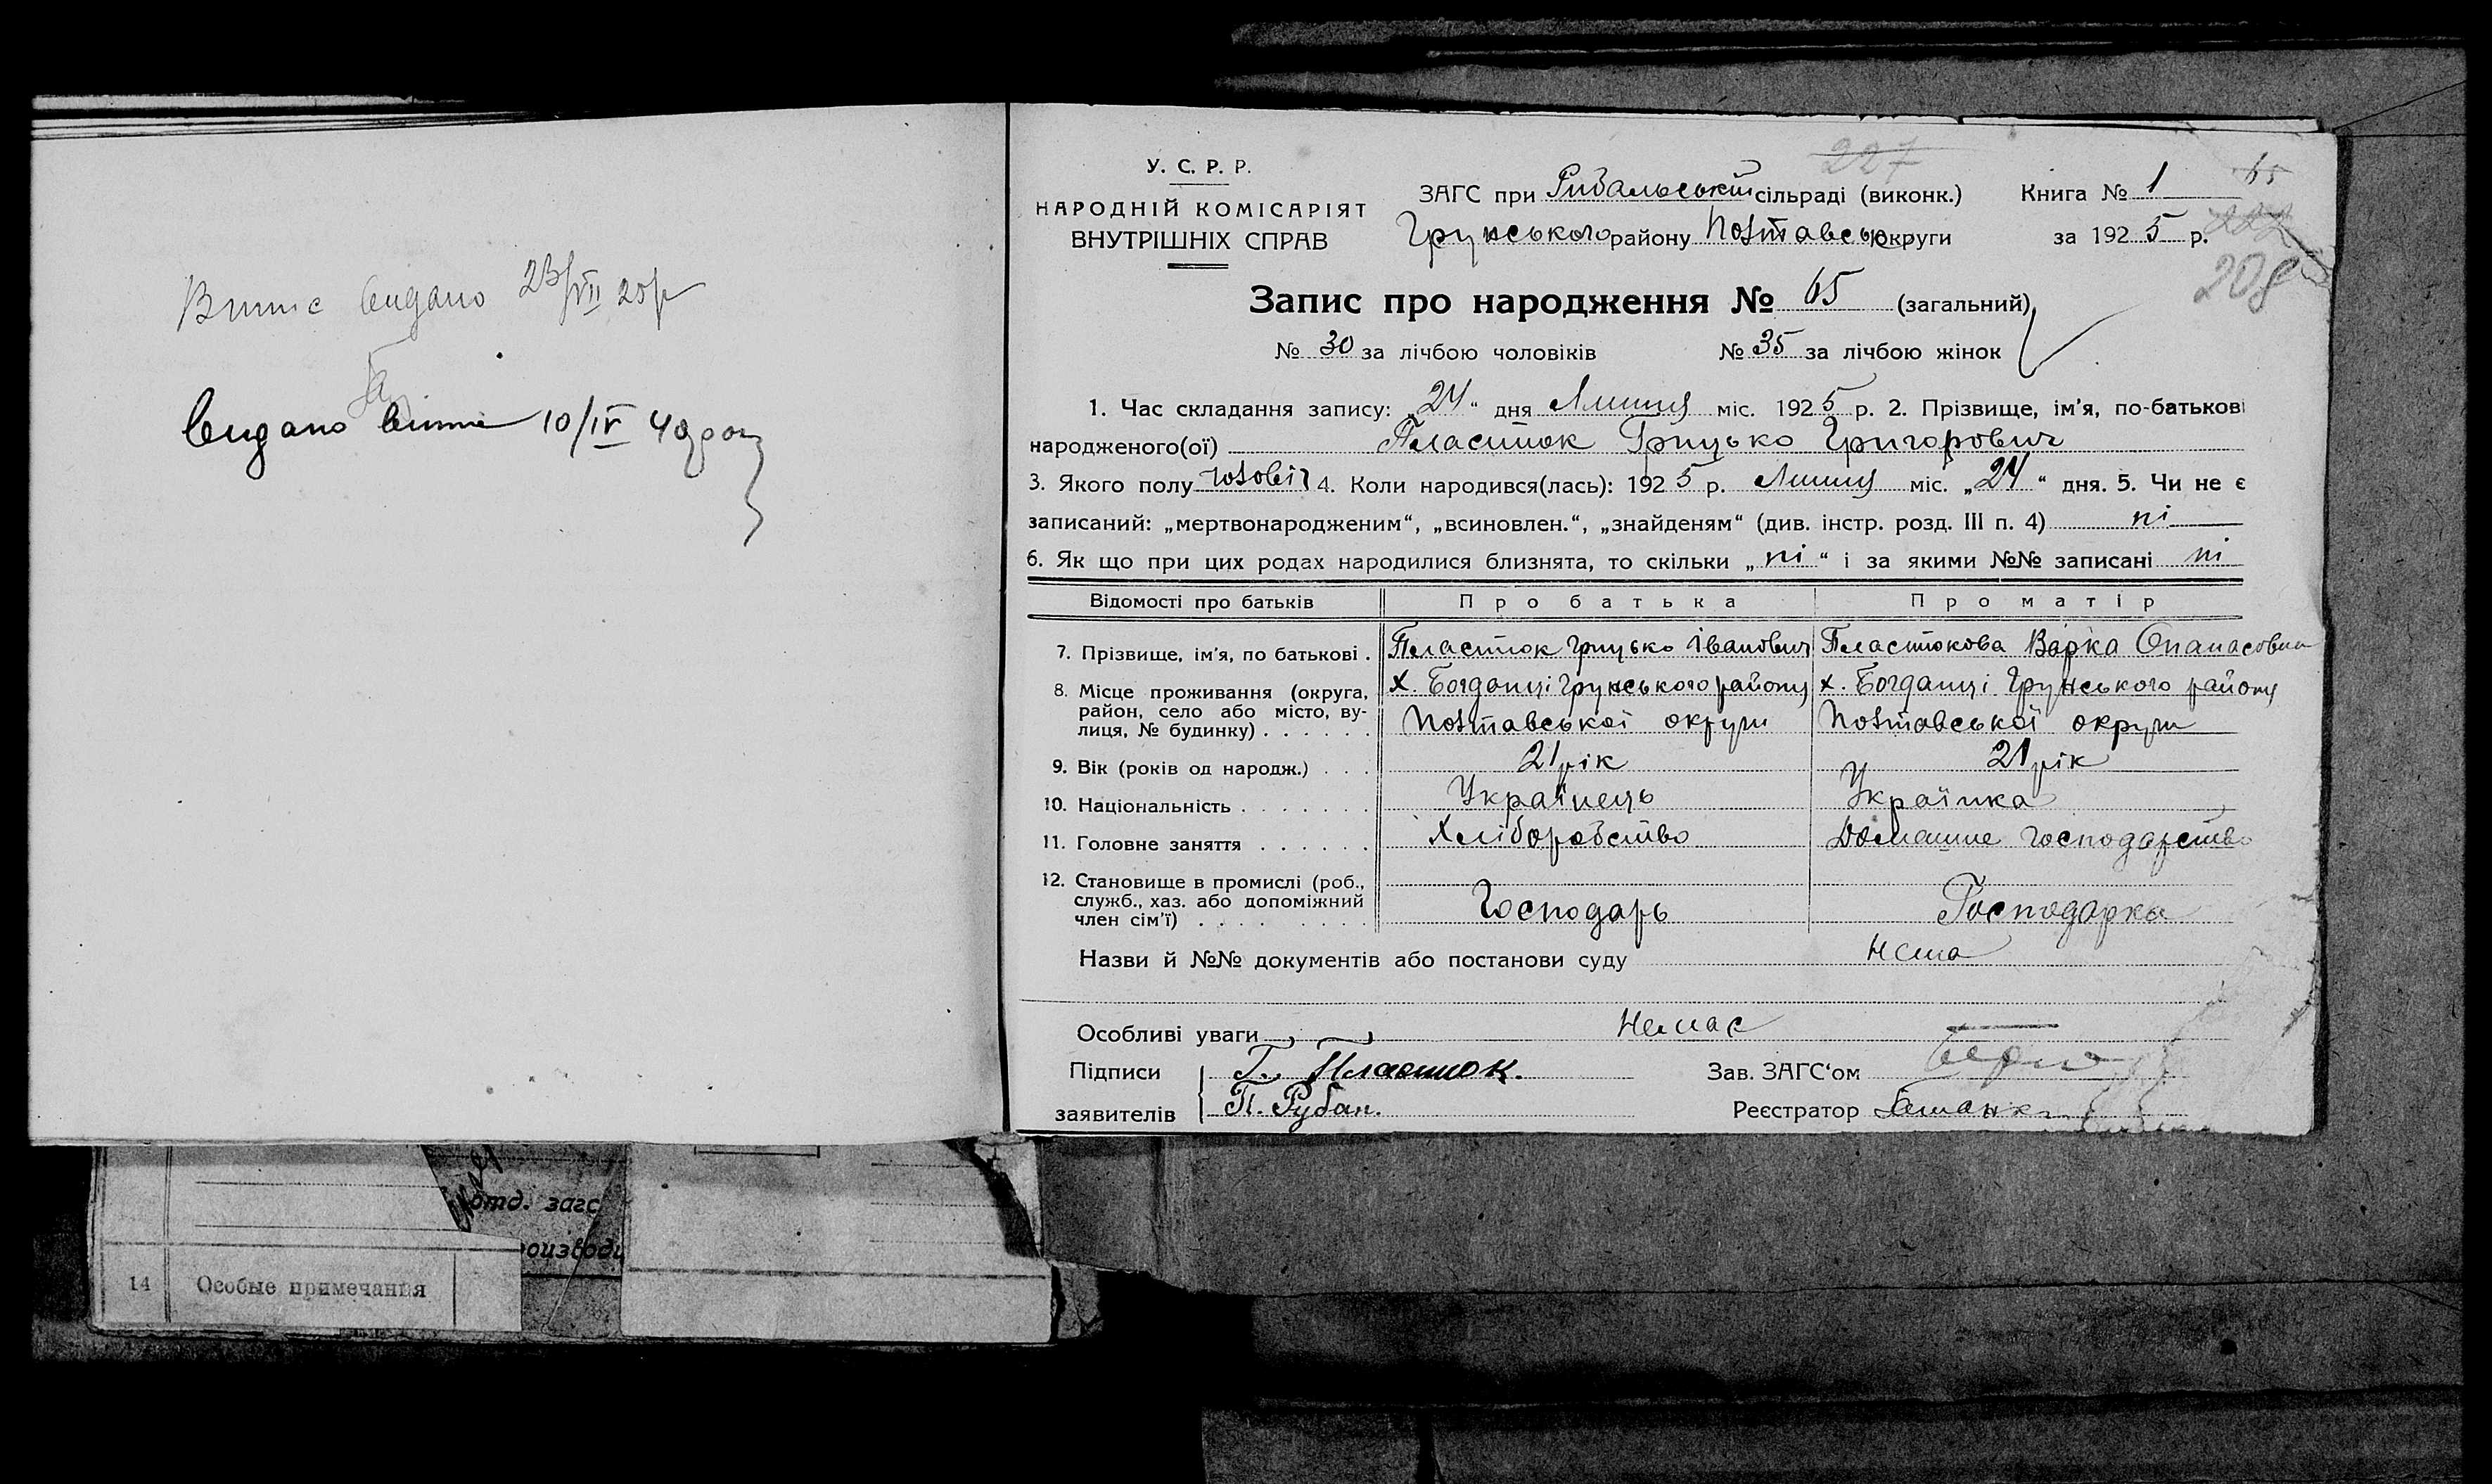 Витяг видано 23/VII 25р
видано витяг 10/IV 40 року
отд. загс
14 Особые примечания
227
У. С. Р. Р.
НАРОДНІЙ КОМІСАРІЯТ
ВНУТРІШНІХ СПРАВ
ЗАГС при Рибальській сільраді (виконк.) Книга № 1 65
Грунського району Полтавськ округи за 1925 р.
208
Запис про народження № 65 (загальний)
№ 30 за лічбою чоловіків № 35 за лічбою жінок
1. Час складання запису: „24“ дня Липня міс. 1925 р. 2. Прізвище, ім’я, по-батькові
народженого(ої) Пластюк Грицько Григорович
3. Якого полу чоловіч 4. Коли народився(лась): 1925 р. Липня міс. „24“ дня. 5. Чи не є
записаний: „мертвонародженим“, „всиновлен.“, „знайденям“ (див. інстр. розд. III п. 4) ні
6. Як що при цих родах народилися близнята, то скільки „ні“ і за якими №№ записані ні
Відомості про батьків Про батька Про матір
7. Прізвище, ім’я, по батькові . Пластюк Грицько Іванович Пластюкова Варка Опанасовна
8. Місце проживання (округа, район, село або місто, ву-лиця, № будинку) . . . . . . х. Богданці Грунського району х. Богданці Грунського району
Полтавської округи Полтавської округи
9. Вік (років од народж.) . . . 21 рік 21 рік
10. Національність . . . . . . . Українець Українка
11. Головне заняття . . . . . . Хліборобство Домашнє господарство
12. Становище в промислі (роб., служб., хаз. або допоміжний член сім’ї) . . . . . . . . Господарь Господарка
Назви й №№ документів або постанови суду нема
Особливі уваги Немає
Підписи Г. Пластюк. Зав. ЗАГС‘ом
заявителів П. Рубан. Реєстратор